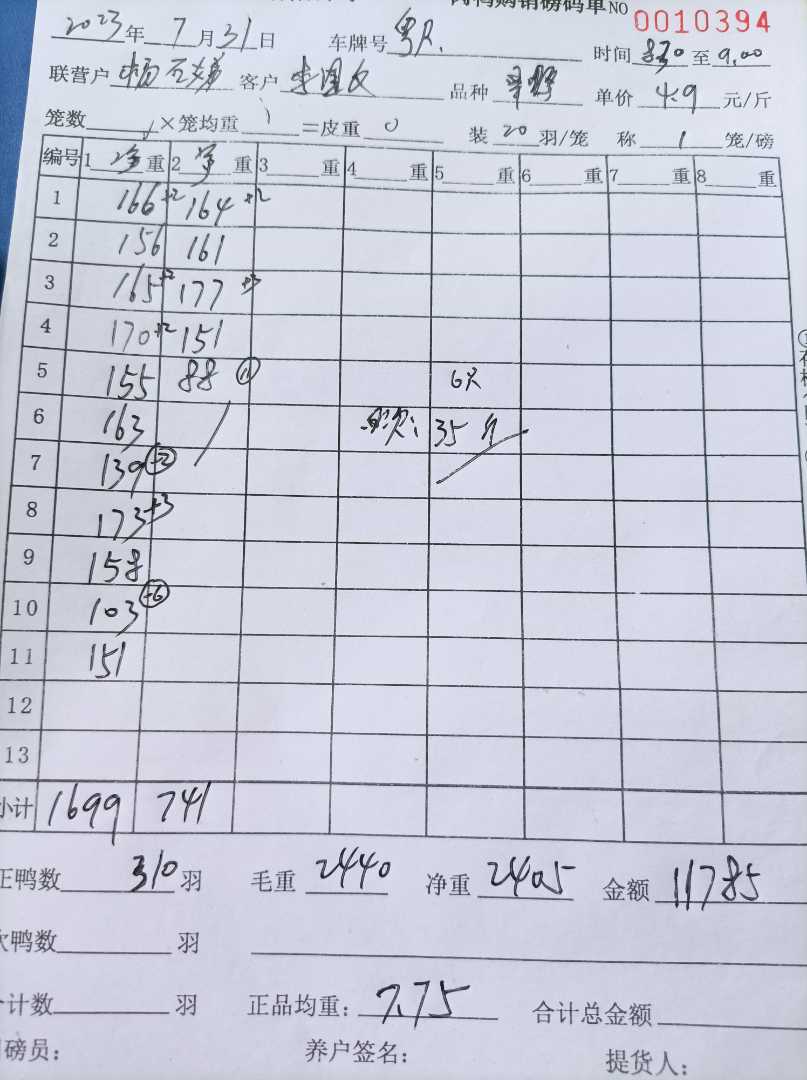 肉鸭购销磅码单 NO 0010394
2023年 7 月 31 日 车牌号 粤R. 时间 8:30 至 9:00
联营户 杨 客户 李 品种 单价 4.9 元/斤
笼数 ×笼均重 =皮重 0 装 20 羽/笼 称 1 笼/磅
编号 1 净 重 2 净 重 3 重 4 重 5 重 6 重 7 重 8 重
1 166 +2 164 +2
2 156 161
3 165 +2 177 +3
4 170 +2 151
5 155 88 ⑪ 6只
6 163 35 斤
7 139 -2
8 173 +3
9 158
10 103 -6
11 151
12
13
小计 1699 741
正鸭数 310 羽 毛重 2440 净重 2405 金额 11785
次鸭数 羽
合计数 羽 正品均重: 7.75 合计总金额
司磅员: 养户签名: 提货人: